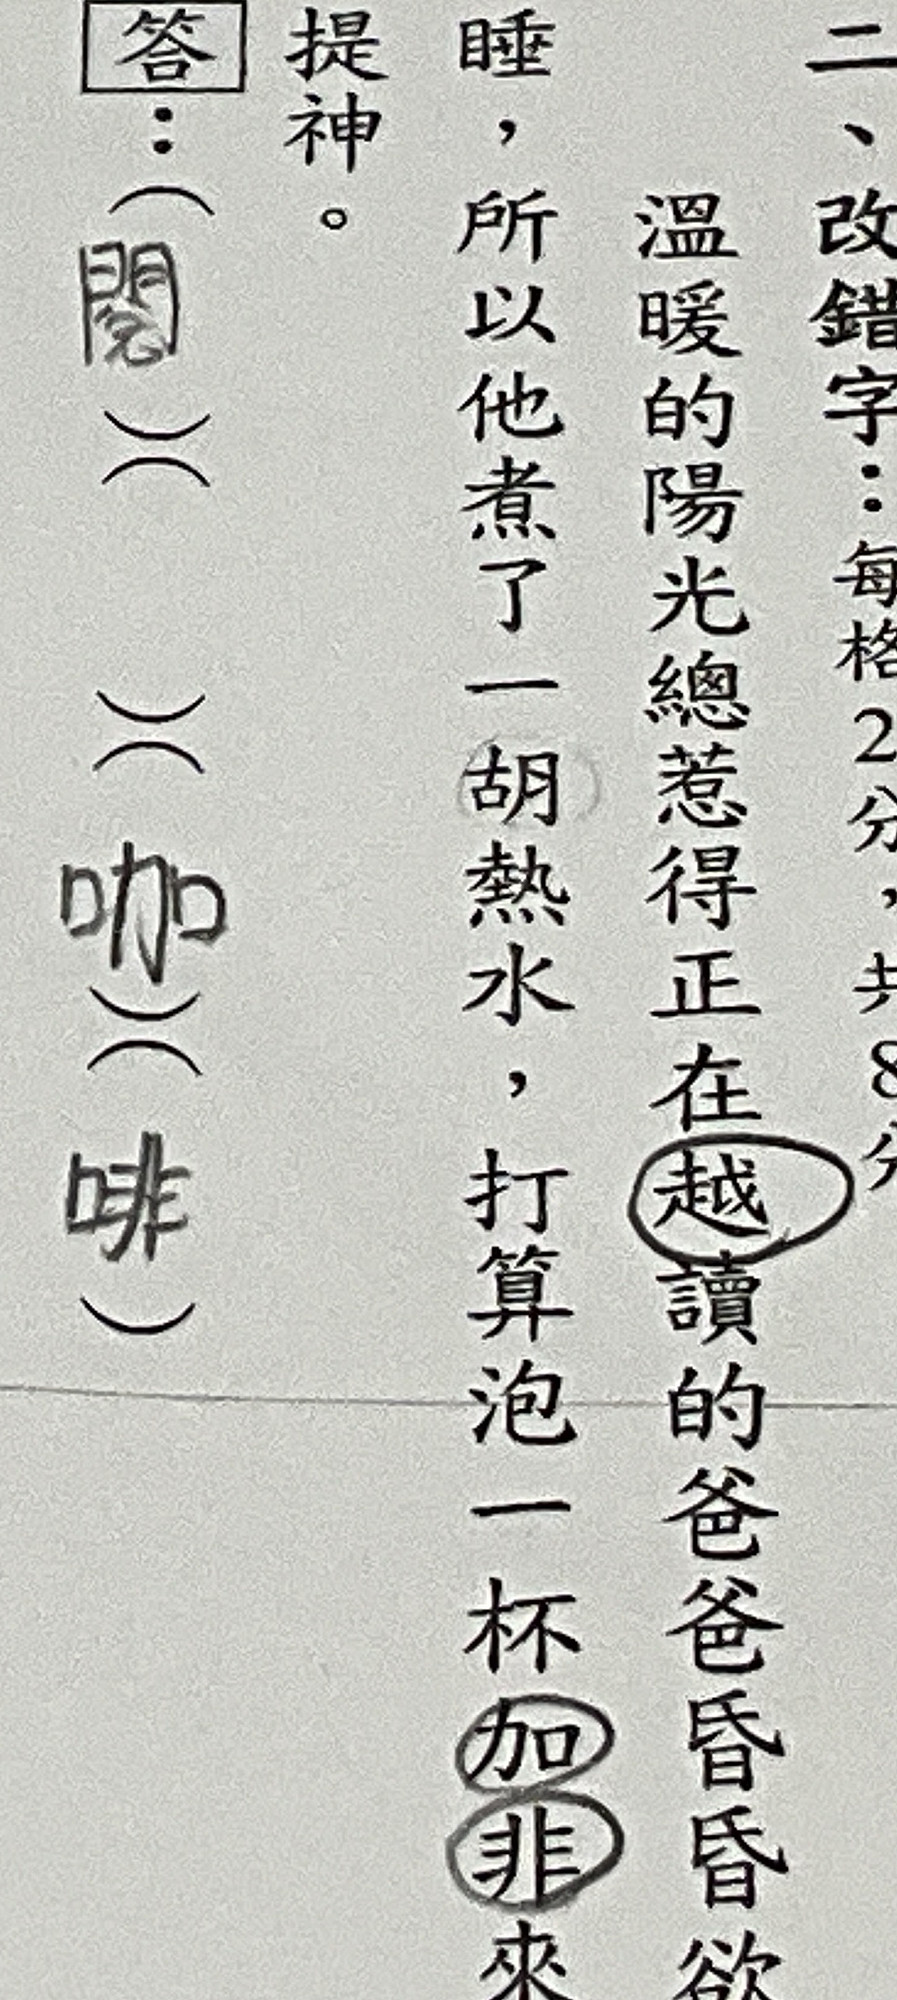 二、改錯字：每格2分，共8分
溫暖的陽光總惹得正在越讀的爸爸昏昏欲
睡，所以他煮了一胡熱水，打算泡一杯加非來
提神。
答：（閱）（ ）（咖）（啡）